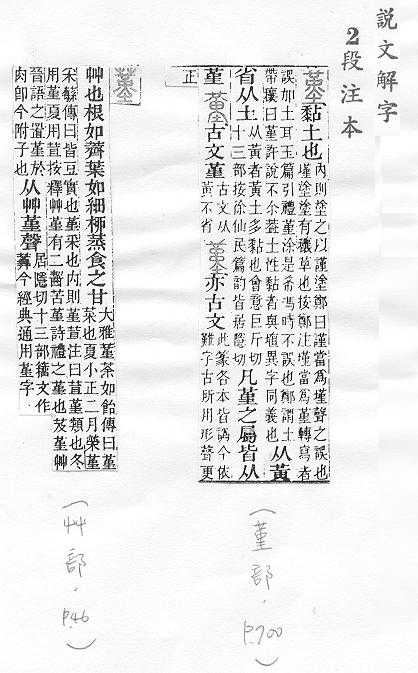 説文解字
2段注本
黏土也 內則塗之以謹塗鄭曰謹當爲墐聲之誤也
墐塗塗有穰草也按鄭注墐當爲堇轉寫者
誤加土耳玉篇引禮堇涂是希馮時不誤也鄭謂土
帶穰曰堇許說不介葢土性黏者與埴異字同義也 从黃
省从土 从黃者黃土多黏也會意巨斤切
十三部按徐仙民篇韵皆居隱切 凡堇之屬皆从
堇 古文堇 黃不省 亦古文 此篆各本皆譌今依
難字古所用形聲更
正
艸也根如薺葉如細柳蒸食之甘 大雅堇荼如飴傳曰堇
菜也夏小正二月榮堇
采蘩傳曰皆豆實也堇采也內則堇荁注曰荁堇類也冬
用堇夏用荁按釋艸堇有二齧苦堇詩禮之堇也芨堇艸
晉語之寘堇於
肉卽今附子也 从艸堇聲 居隱切十三部籒文作
今經典通用堇字
(堇部.P.700)
(艸部.P.46)